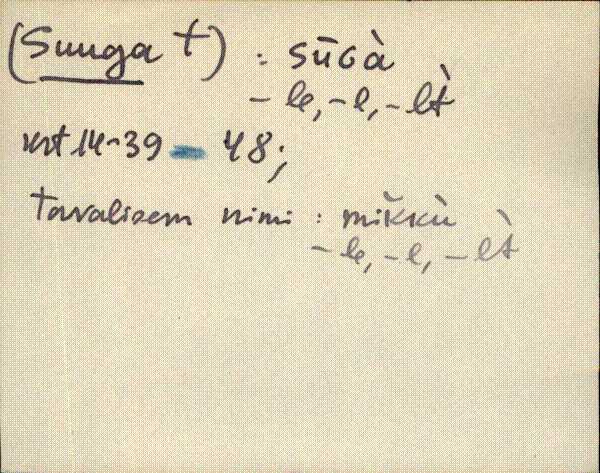 (Suuga t) : sūGà
- le, - l, - lt̀
krt 14-39 - 48;
tavalisem nimi : mĭkkù
- le, - l, - lt̀